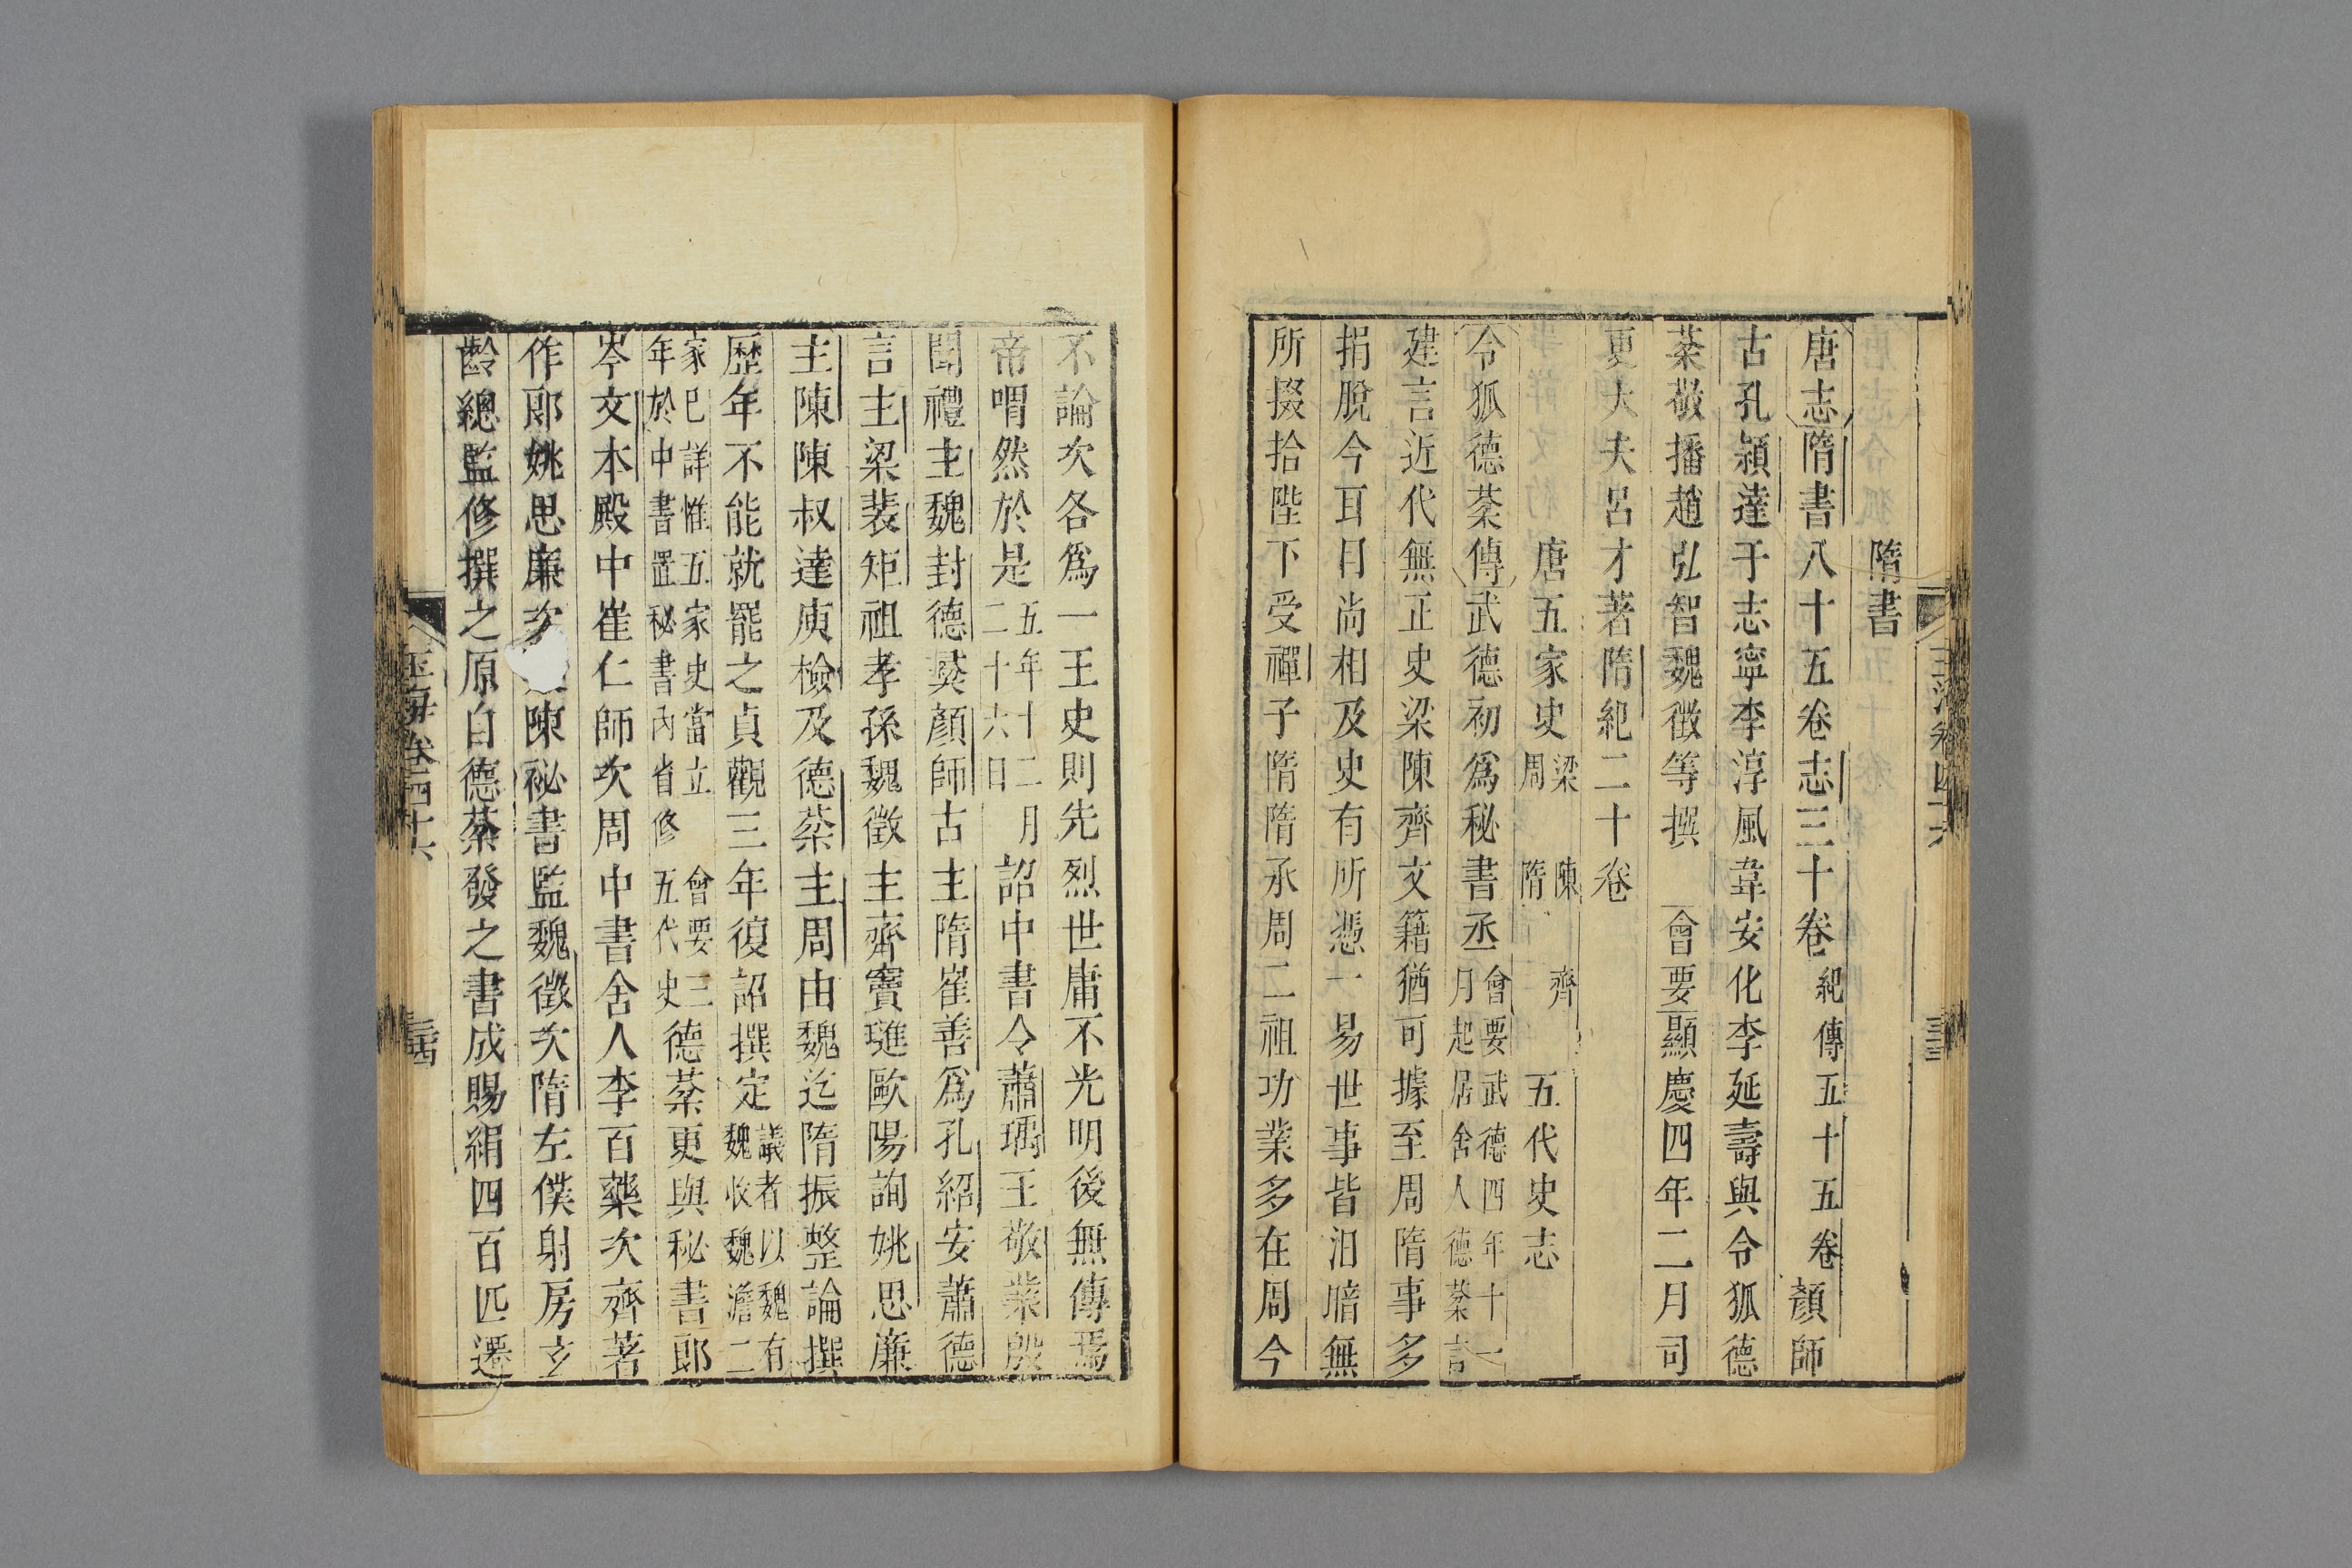 隋書
唐志隋書八十五卷志三十卷紀傳五十五卷顏師
古孔穎達于志寧李淳風韋安化李延壽與令狐德
棻敬播趙弘智魏徵等撰 會要顯慶四年二月司
更大夫呂才著隋紀二十卷
唐五家史梁周陳隋齊 五代史志
令狐德棻傳武德初爲秘書丞會要武德四年十一月起居舍人德棻言
建言近代無正史梁陳齊文籍猶可據至周隋事多
捐脫今耳目尚相及史有所憑一易世事皆汩暗無
所掇拾陛下受禪子隋隋承周二祖功業多在周今
不論次各爲一王史則先烈世庸不光明後無傳焉
帝喟然於是五年十二月二十六日詔中書令蕭瑀王敬業殷
聞禮主魏封德彝顏師古主隋崔善爲孔紹安蕭德
言主梁裴矩祖孝孫魏徵主齊竇璡歐陽詢姚思廉
主陳陳叔達庾檢及德棻主周由魏迄隋振整論撰
歷年不能就罷之貞觀三年復詔撰定議者以魏有魏收魏澹二
家已詳惟五家史當立年於中書置秘書內省修會要三五代史德棻更與秘書郎
岑文本殿中崔仁師次周中書舍人李百藥次齊著
作郎姚思廉次陳祕書監魏徵次隋左僕射房玄
齡總監修撰之原自德棻發之書成賜絹四百匹遷
玉海卷四十六